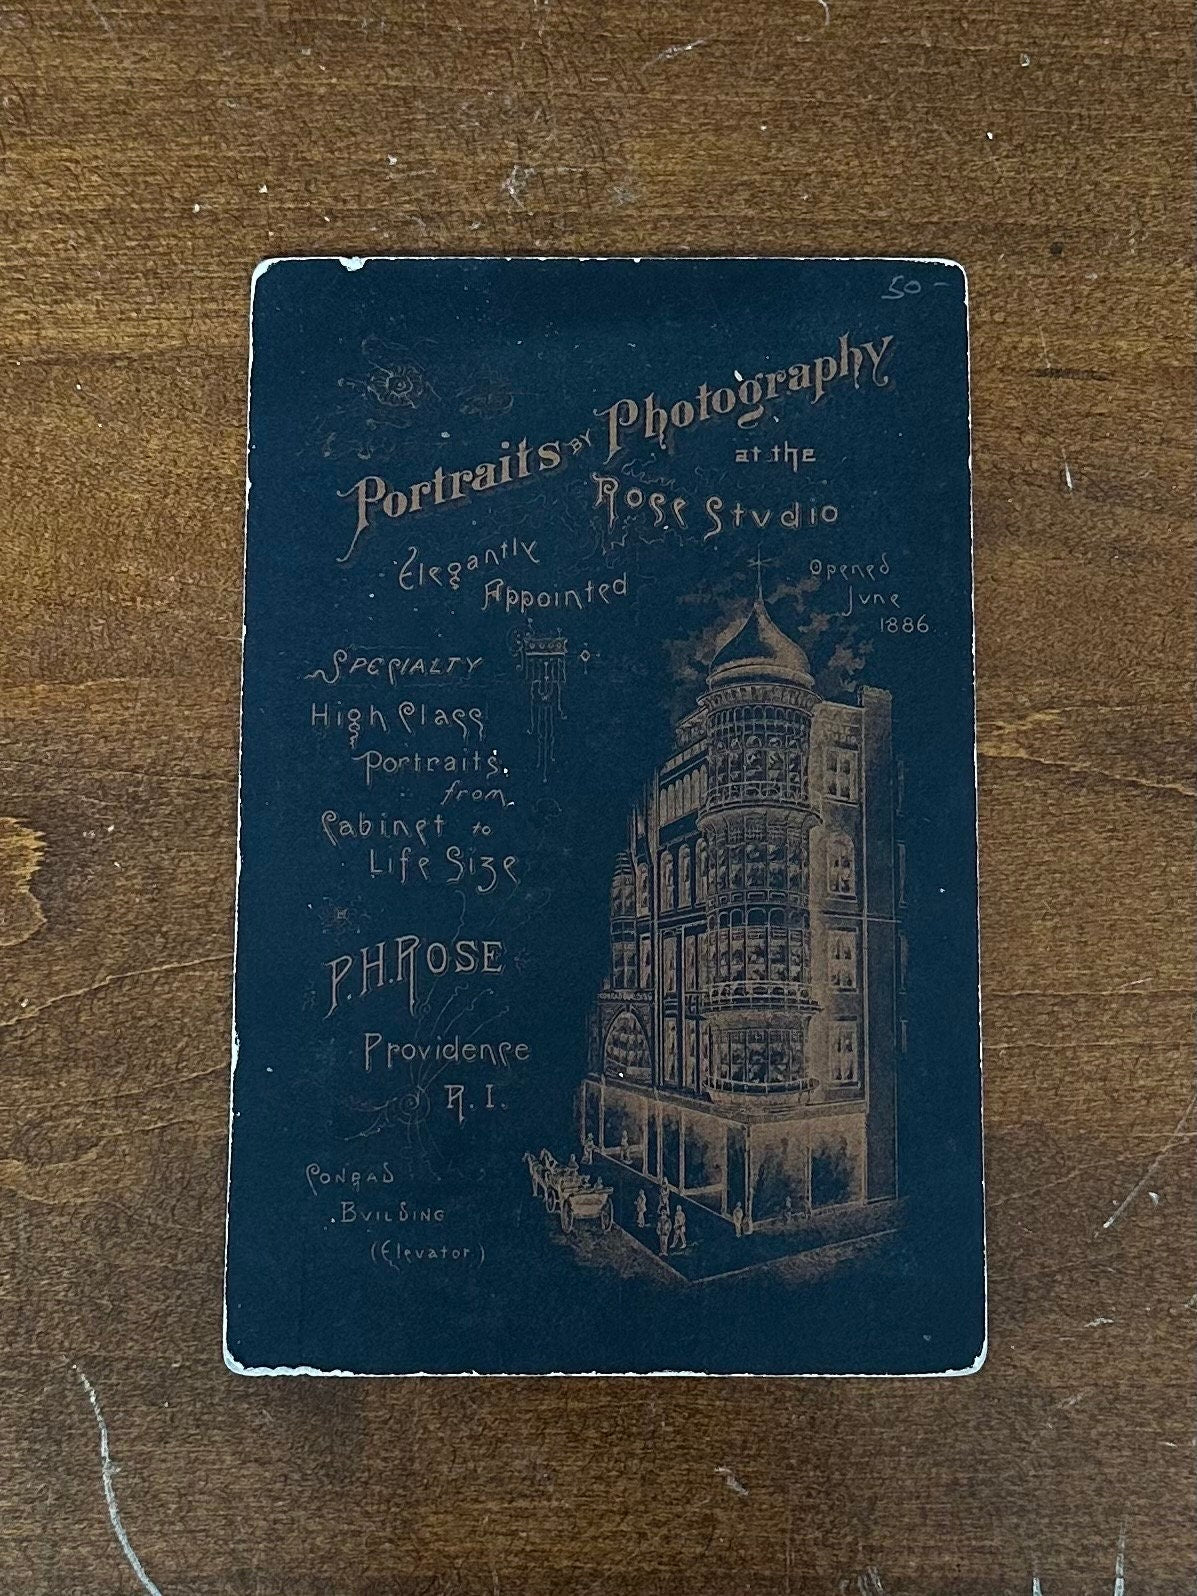 50-
Portraits BY Photography
at the
Rose Studio
Elegantly
Appointed
Opened
June
1886
Specialty
High Class
Portraits
from
Cabinet to
Life Size
P.H. Rose
Providence
R.I.
Conrad
Building
(Elevator)
CONRAD BUILDING